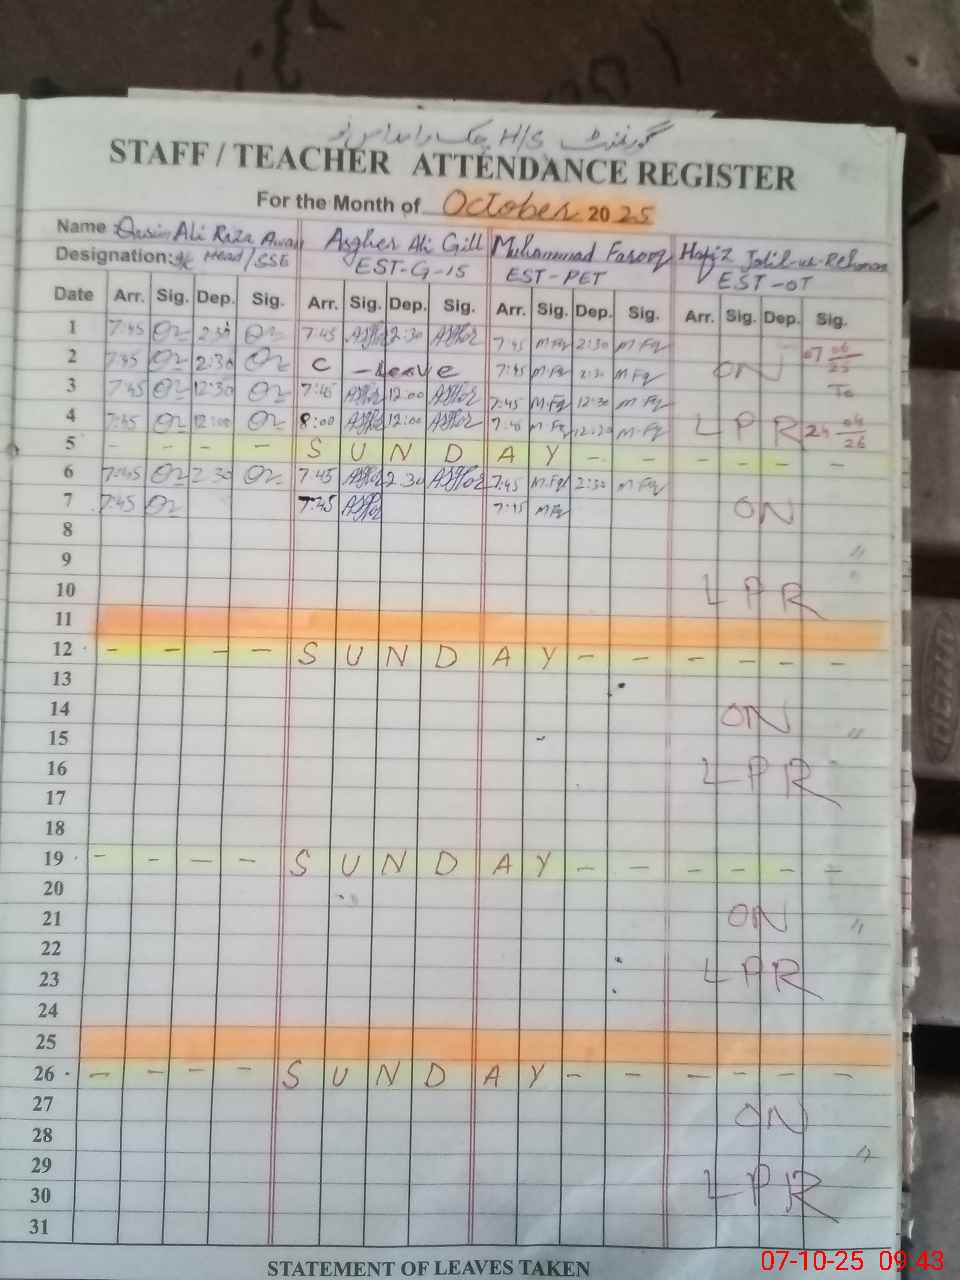 گورنمنٹ H/S چک
STAFF / TEACHER ATTENDANCE REGISTER
For the Month of October 2025
Name : Qasim Ali Raza Awan Asgher Ali Gill Muhammad Farooq Hafiz Jalil-ur-Rehman
Designation: Head/SSE EST-G-15 EST-PET EST-OT
Date Arr. Sig. Dep. Sig. Arr. Sig. Dep. Sig. Arr. Sig. Dep. Sig. Arr. Sig. Dep. Sig.
1 7:45 2:30 7:45 2:30 7:45 M.Fq 2:30 M.Fq
2 7:45 2:30 C - Leave 7:45 M.Fq 2:30 M.Fq ON
3 7:45 12:30 7:45 12:00 7:45 M.Fq 12:30 M.Fq To
4 7:45 12:00 8:00 12:00 7:45 M.Fq 12:30 M.Fq LPR
5 - - - - S U N D A Y - - - - - -
6 7:45 2:30 7:45 2:30 7:45 M.Fq 2:30 M.Fq
7 7:45 7:45 7:45 M.Fq ON
8
9 "
10 LPR
11
12 - - - - S U N D A Y - - - - - -
13
14 ON
15 "
16 LPR
17
18
19 - - - - S U N D A Y - - - - - -
20
21 ON "
22
23 LPR
24
25
26 - - - - S U N D A Y - - - - - -
27 ON
28
29 "
30 LPR
31
STATEMENT OF LEAVES TAKEN
07-10-25 09:43